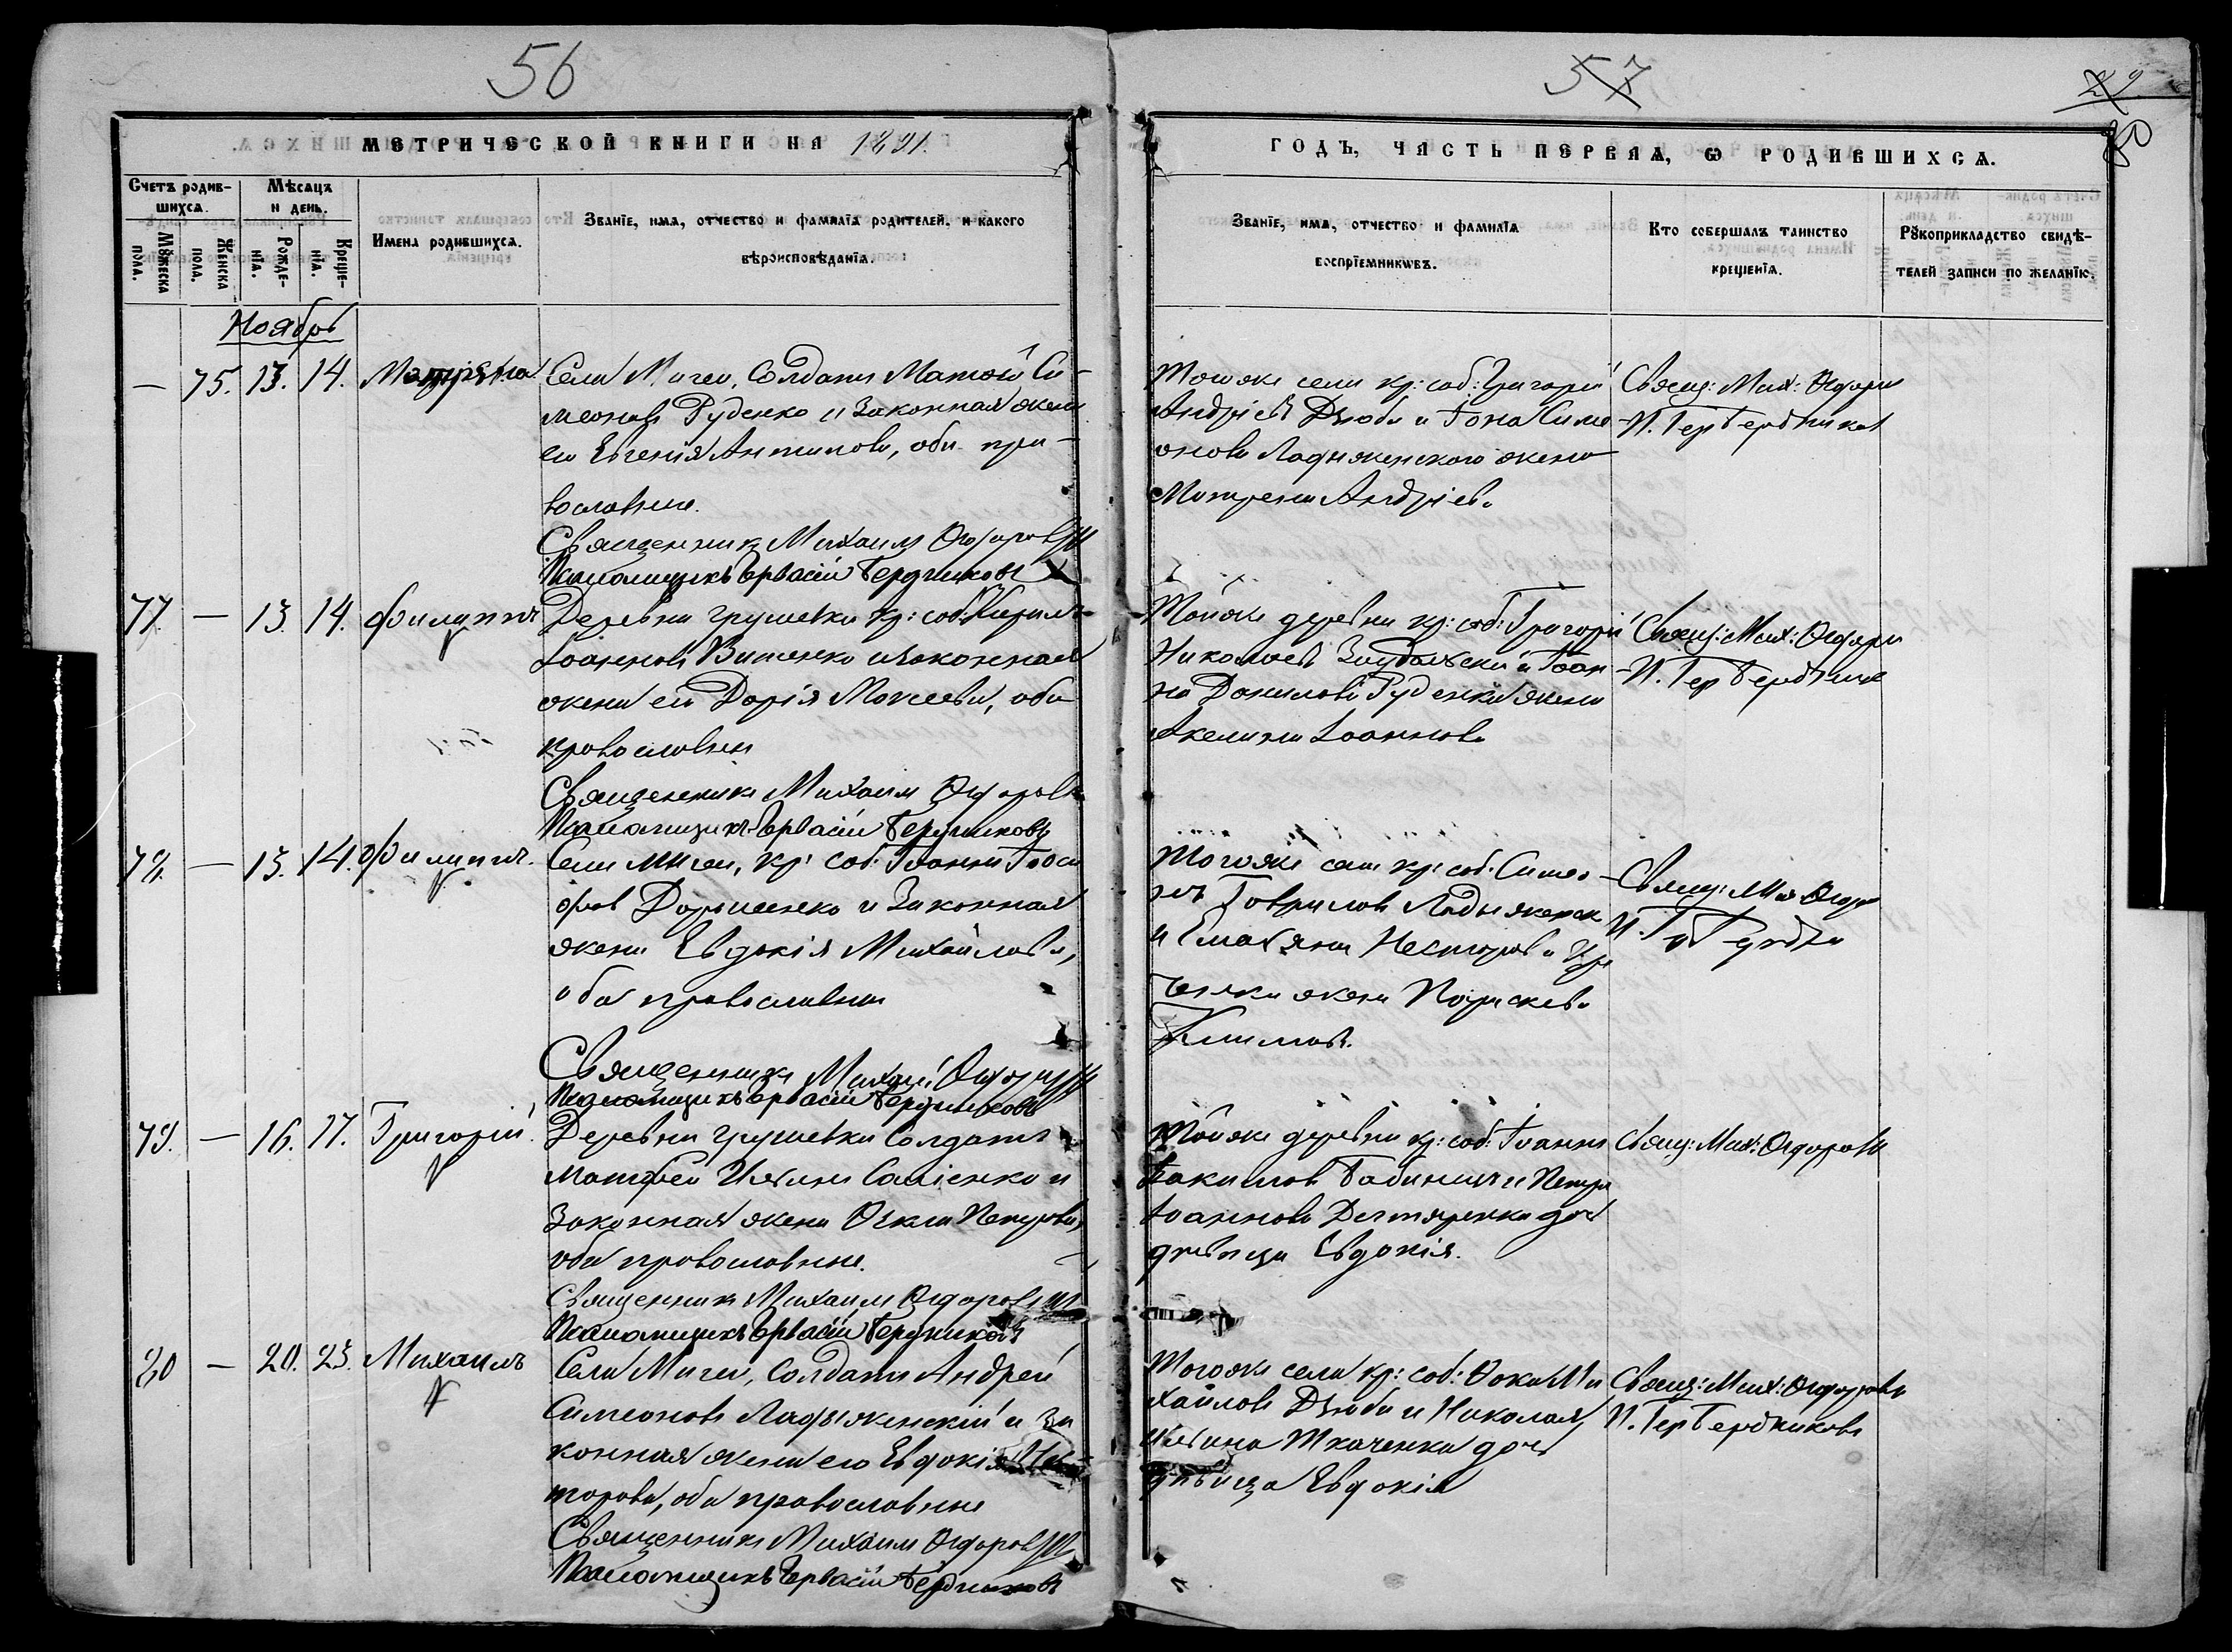 56
МЕТРИЧЕСКОЙ КНИГИ НА 1891.
Счетъ родив-
шихся.
Мѣсяцъ
и день.
Мужеска
пола.
Женска
пола.
Рожде-
нія.
Креще-
нія.
Имена родившихся.
Званіе, имя, отчество и фамилія родителей, и какого
вѣроисповѣданія.
Ноябрь
— 75. 13. 14. Матрена
Села Мигеи, Солдатъ Матвѣй Си-
меоновъ Руденко и законная жена
его Евгенія Антипова, оба пра-
вославные.
Священникъ Михаилъ
Псаломщикъ Гервасій Бердниковъ
77. — 13. 14. Филиппъ
Деревни Грушевки кр: соб: Кирилъ
Іоанновъ Витенко и законная
жена его Дарія Мокеева, оба
православны
Священникъ Михаилъ
Псаломщикъ Гервасій Бердниковъ
78. — 13. 14. Филиппъ.
Села Мигеи, кр: соб: Іоаннъ Іоси
фовъ Дорошенко и законная
жена Евдокія Михайлова,
оба православны
Священникъ Михаилъ
Псаломщикъ Гервасій Бердниковъ
79. — 16. 17. Григорій.
Деревни Грушевки Солдатъ
Матфей Саліенко и
законная жена Петрова,
оба православные.
Священникъ Михаилъ
Псаломщикъ Гервасій Бердниковъ
80 — 20. 23. Михаилъ
Села Мигеи, Солдатъ Андрей
Симеоновъ Ладыженскій и за
конная жена его Евдокія Нес-
торова, оба православные
Священникъ Михаилъ
Псаломщикъ Гервасій Бердниковъ
57
29
80
ГОДЪ, ЧАСТЬ ПЕРВАЯ, Ѡ РОДИВШИХСЯ.
Званіе, имя, отчество и фамилія
воспріемниковъ.
Кто совершалъ таинство
крещенія.
Рукоприкладство свидѣ-
телей записи по желанію.
Тогоже села кр: соб: Григорій
Андріевъ Дзюба и Симе
онова Ладыженского жена
Матрена Андріева
Свящ: Мих:
П. Гер Бердников
Тойже деревни кр: соб: Григорій
Николаевъ и Іоан
на Данилова Руденка жена
Акелина Іоаннова
Свящ: Мих:
П. Гер Бердник
Тогоже села кр: соб: Симео
нъ Гавриловъ Ладыженск
и Несторова
жена Параскева
Климова.
Свящ: Мих
Тойже деревни кр: соб: Іоаннъ
Бабинъ и Петра
Іоаннова Дегтяренка дочь
дѣвица Евдокія.
Свящ: Мих:
Тогоже села кр: соб: Фока Ми
хайловъ Дзюба и Николая
Ткаченка дочь
дѣвица Евдокія
Свящ: Мих:
П. Гер Бердниковъ